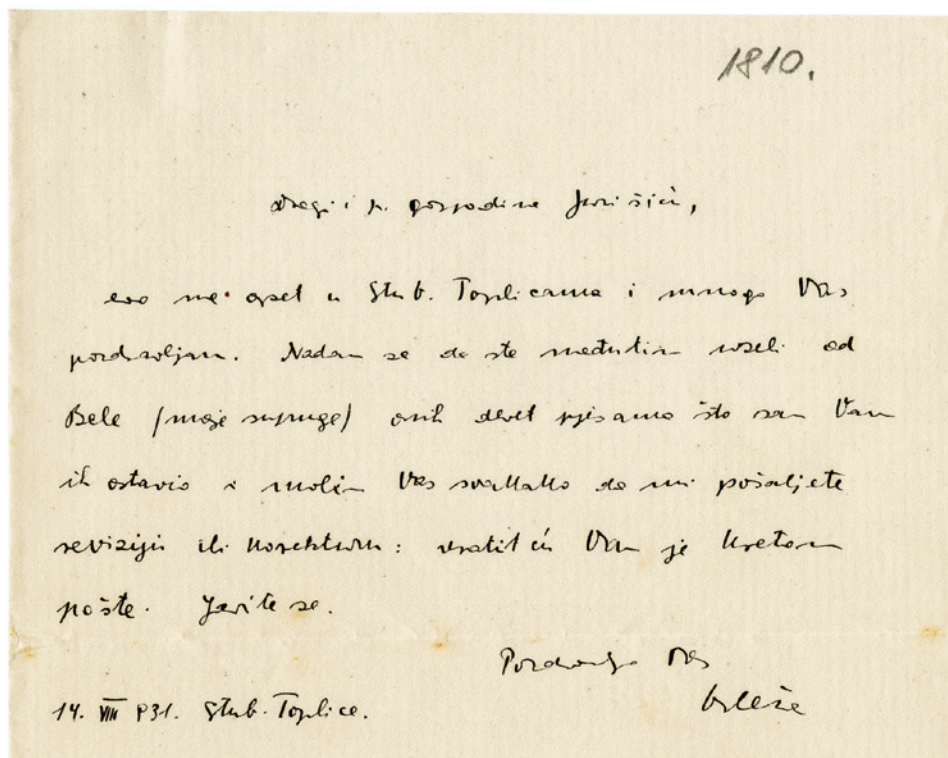 1810.
dragi i p. gospodine Jurišić,
evo me opet u Stub. Toplicama i mnogo Vas
pozdravljam. Nadam se da ste međutim uzeli od
Bele (moje supruge) onih devet pjesama što sam Vam
ih ostavio i molim Vas svakako da mi pošaljete
reviziju ili korekturu: vratit ću Vam je kretom
pošte. Javite se.
Pozdravlja Vas
Krleža
14. VIII 931. Stub. Toplice.